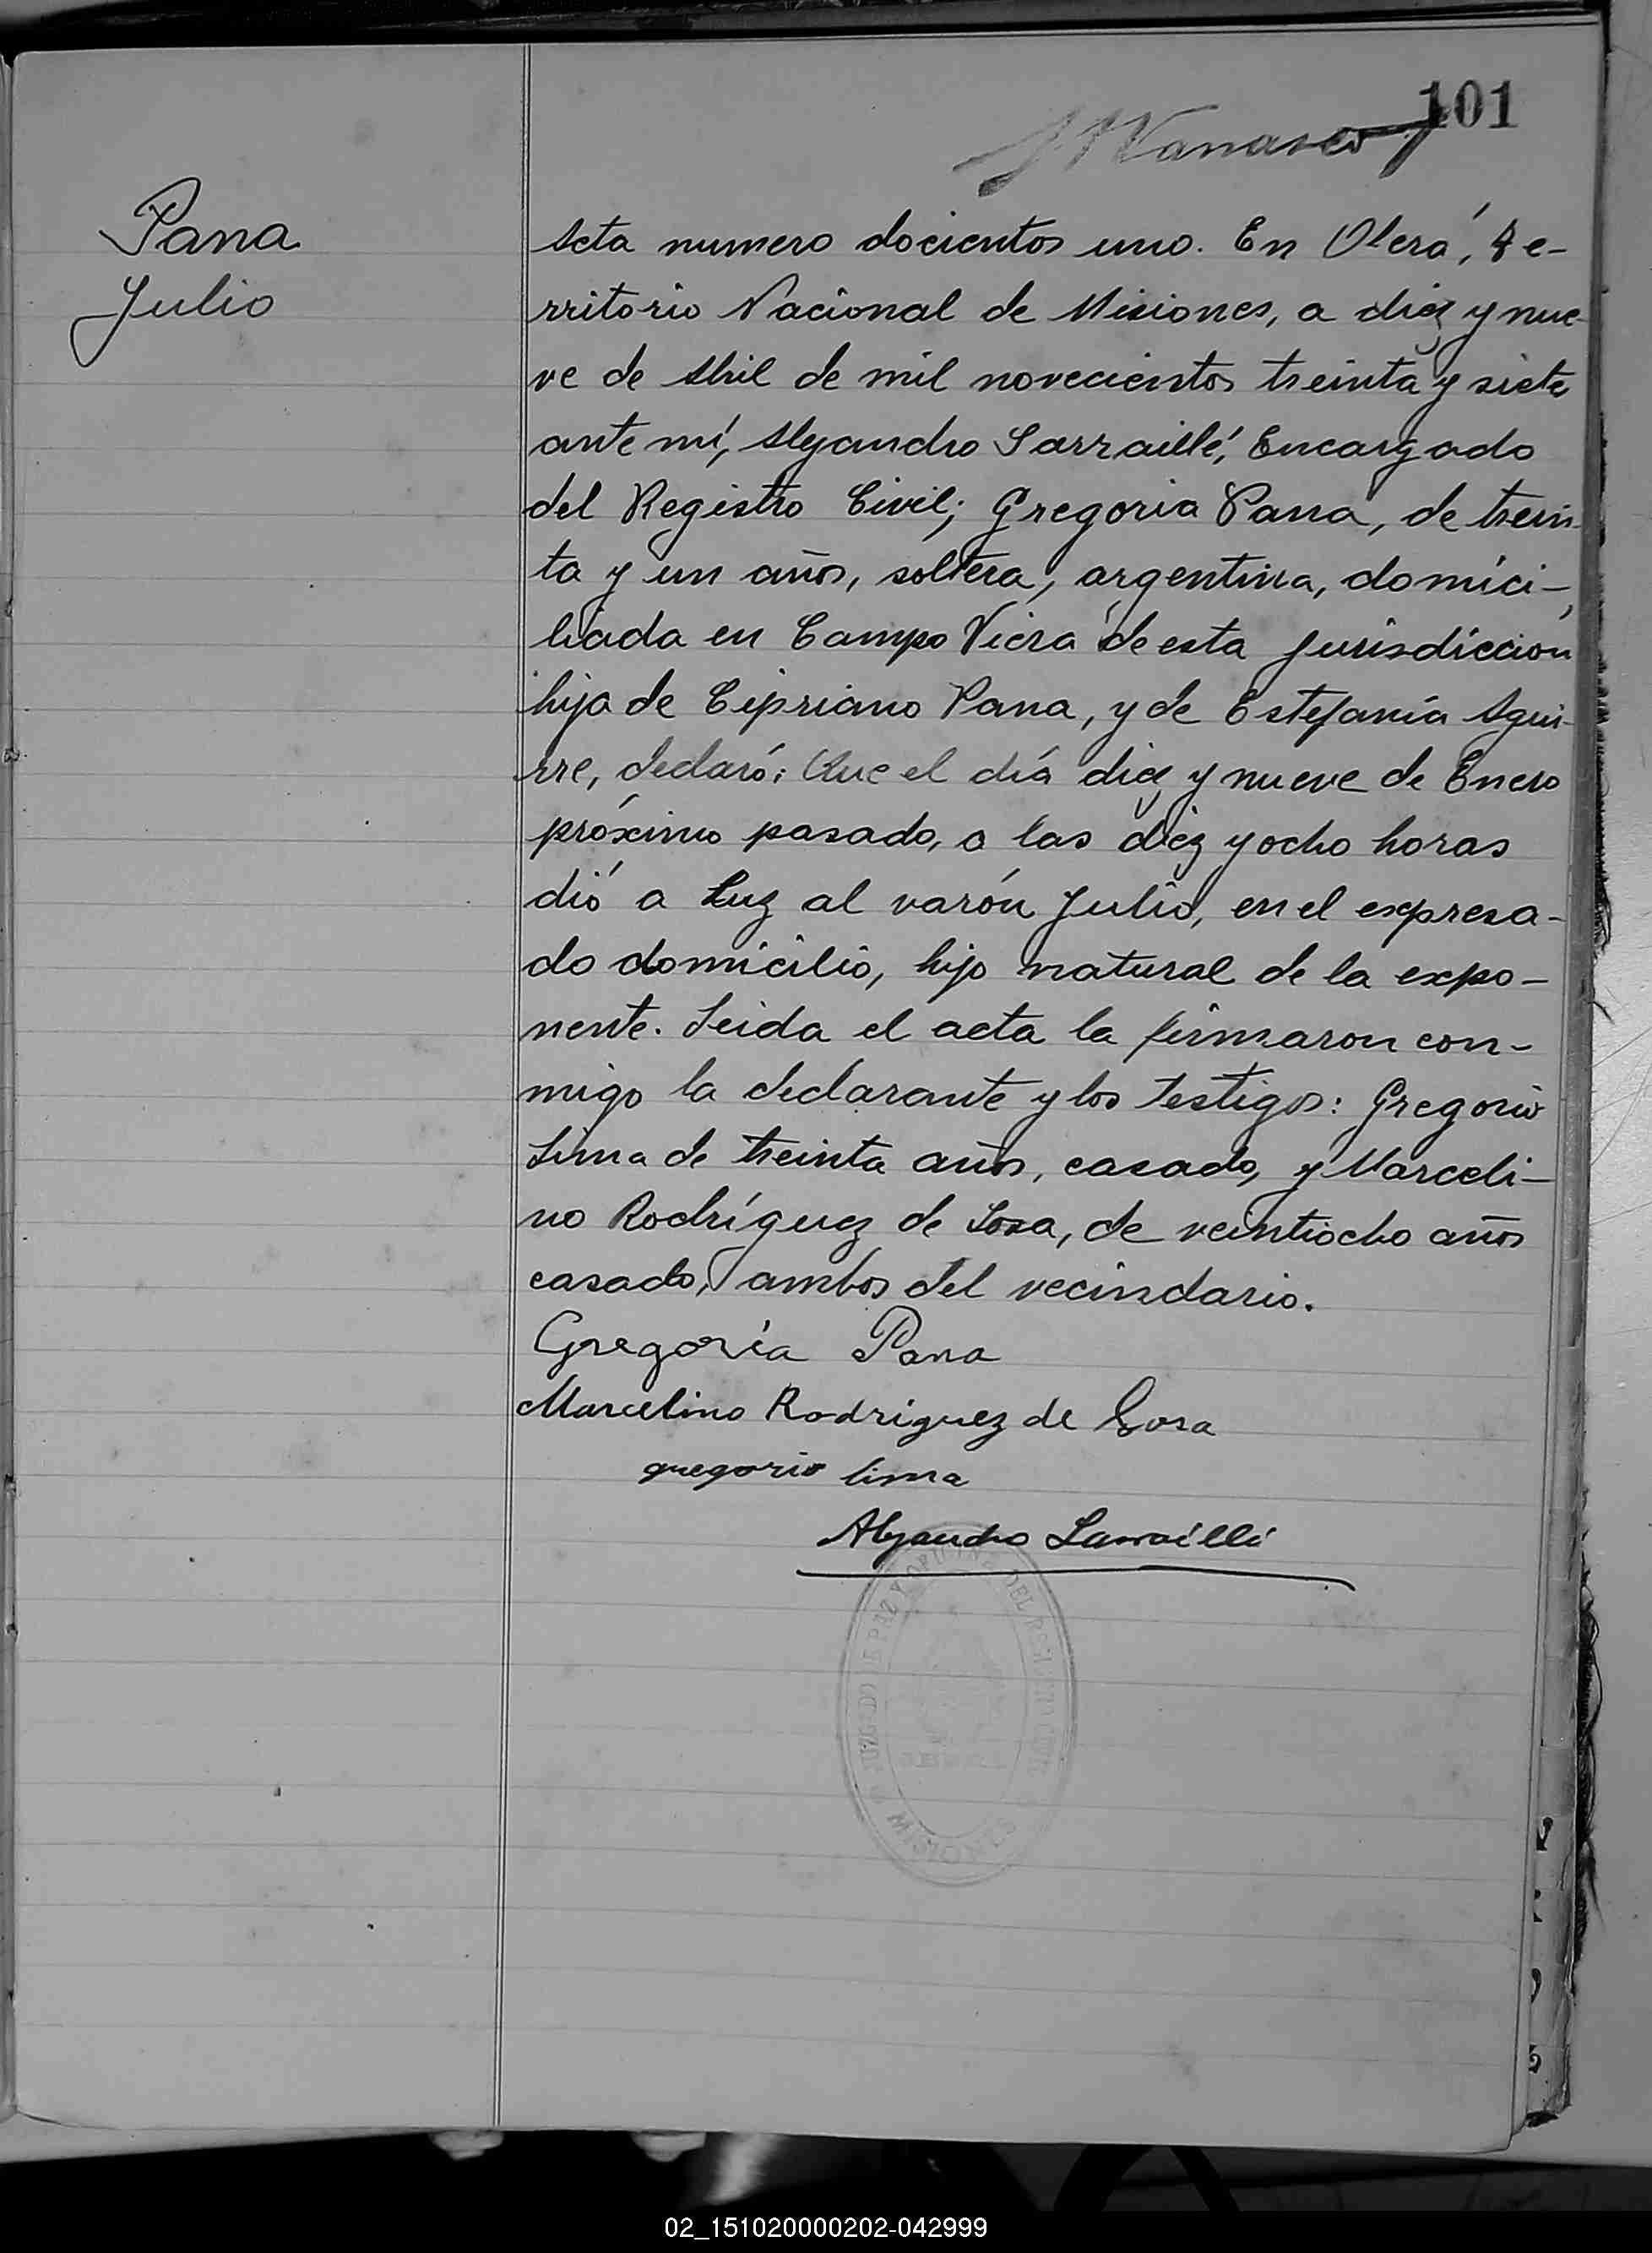 101
Pana
Julio
Acta numero docientos uno. En Oberá, Te-
rritorio Nacional de Misiones, a diez y nue-
ve de Abril de mil novecientos treinta y siete
ante mí, Alejandro Sarraillé, Encargado
del Registro Civil; Gregoria Pana, de trein-
ta y un años, soltera, argentina, domici-
liada en Campo Viera de esta Jurisdicción,
hija de Cipriano Pana, y de Estefanía Agui-
rre, declaró: Que el día diez y nueve de Enero
próximo pasado, a las diez y ocho horas
dió a Luz al varón Julio, en el expresa-
do domicilio, hijo natural de la expo-
nente. Leida el acta la firmaron con-
migo la declarante y los testigos: Gregorio
Lima de treinta años, casado, y Marceli-
no Rodríguez de Sosa, de veintiocho años
casado, ambos del vecindario.
Gregoria Pana
Marcelino Rodriguez de Sosa
gregorio lima
Alejandro Sarraillé
JUZGADO DE PAZ Y OFICINA DEL REGISTRO CIVIL
MISIONES
02_151020000202-042999